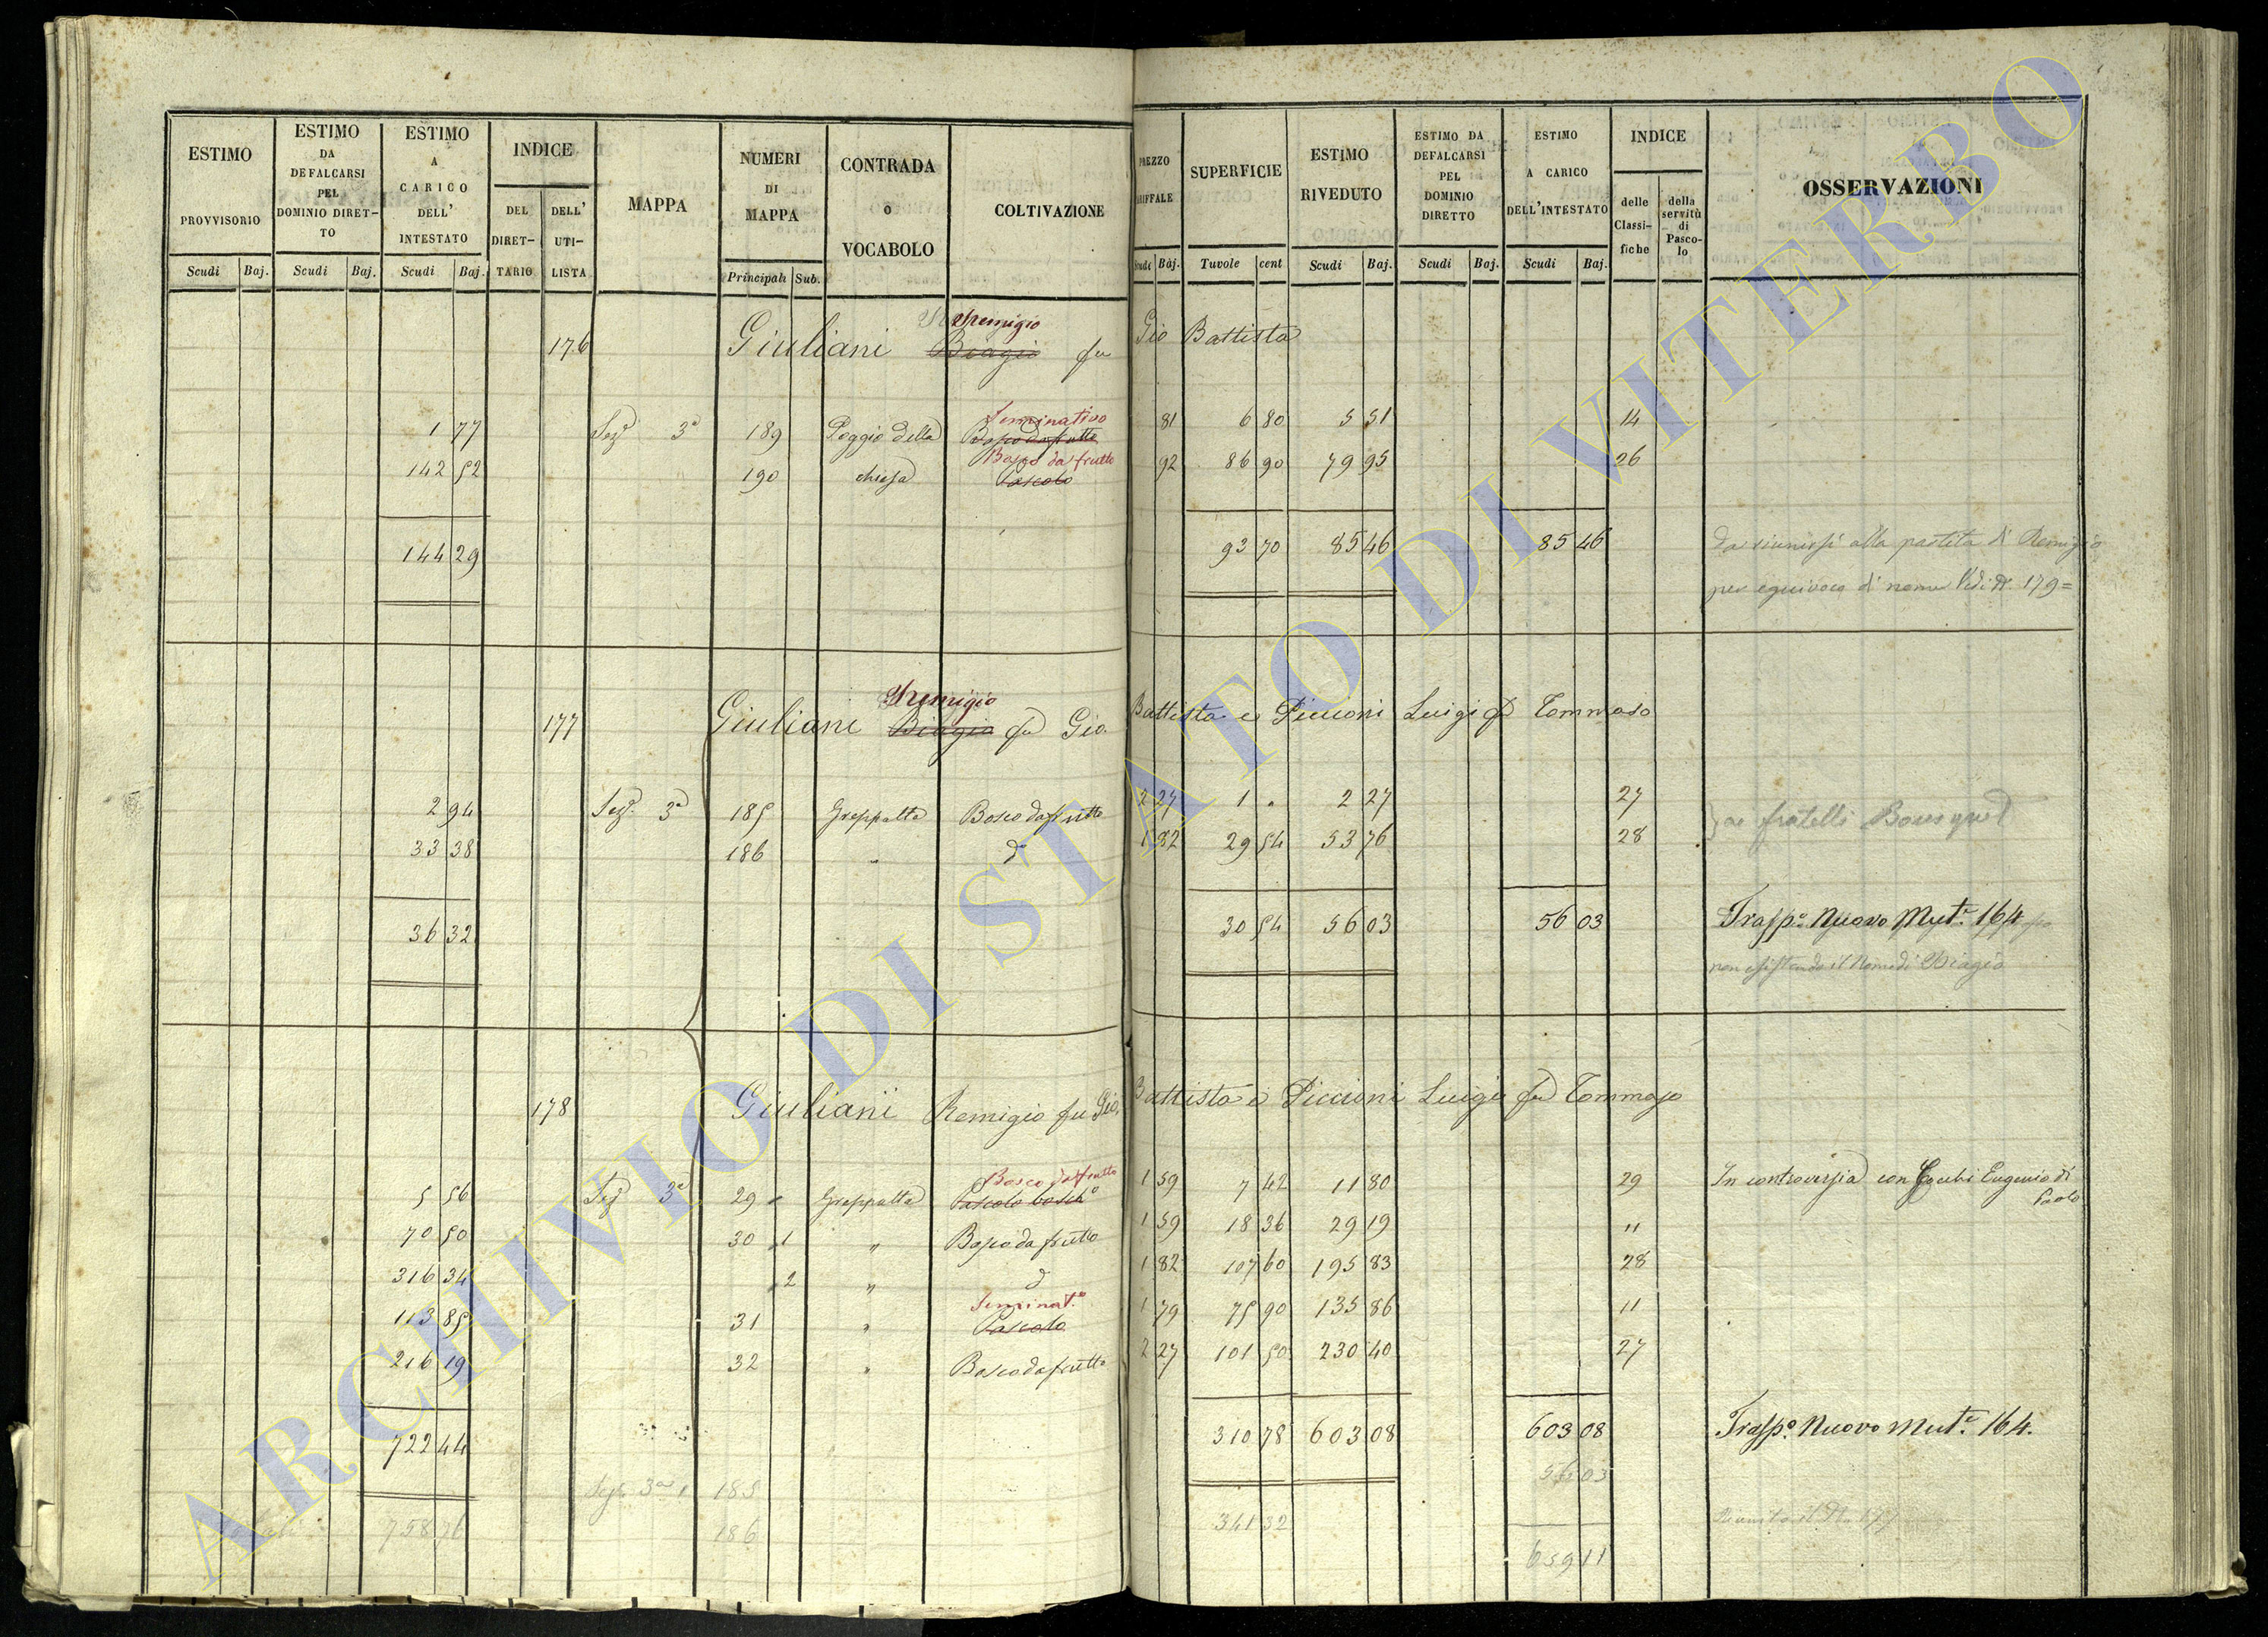 ESTIMO PROVVISORIO Scudi Baj.
ESTIMO DA DEFALCARSI PEL DOMINIO DIRET-TO Scudi Baj.
ESTIMO A CARICO DELL' INTESTATO Scudi Baj.
INDICE DEL DIRET-TARIO DELL' UTI-LISTA
MAPPA
NUMERI DI MAPPA Principali Sub.
CONTRADA o VOCABOLO
COLTIVAZIONE
PREZZO Scudi Baj.
SUPERFICIE Tuvole cent
ESTIMO RIVEDUTO Scudi Baj.
ESTIMO DA DEFALCARSI PEL DOMINIO DIRETTO Scudi Baj.
ESTIMO A CARICO DELL'INTESTATO Scudi Baj.
INDICE delle Classi-fiche della servitù di Pasco-lo
OSSERVAZIONI
Remigio
176 Giuliani Biagio fu Gio Battista
Seminativo
1 77 Sez.e 3a 189 Poggio della Bosco da frutto 81 6 80 5 51 14
Bosco da frutto
142 52 190 chiesa Pascolo 92 86 90 79 95 26
144 29 93 70 85 46 85 46 da riunirsi alla partita di Remigio
per equivoco di nome Vedi N. 179=
Remigio
177 Giuliani Biagio fu Gio. Battista e Piccioni Luigi fu Tommaso
2 94 Sez.e 3a 185 Greppalta Bosco da frutto 2 27 1 " 2 27 27
ai fratelli
33 38 186 " do 1 82 29 54 53 76 28
36 32 30 54 56 03 56 03 Trasp.o Nuovo Mut.e 164
non esistendo il Nome di Biagio
178 Giuliani Remigio fu Gio. Battista e Piccioni Luigi fu Tommaso
Bosco da frutto
5 56 Sez.e 3a 29 " Greppalta Pascolo bosc.o 1 59 7 42 11 80 29 In controversia con Eugenio di
Paolo
70 50 30 1 " Bosco da frutto 1 59 18 36 29 19 "
316 34 " 2 " do 1 82 107 60 195 83 28
Seminat.o
113 85 31 " Pascolo 1 79 75 90 135 86 11
216 19 32 " Bosco da frutto 2 27 101 50 230 40 27
722 44 310 78 603 08 603 08 Trasp.o Nuovo Mut.e 164.
Sez.e 3a 185 56 03
758 76 186 341 32 Riunito il N. 177
659 11
ARCHIVIO DI STATO DI VITERBO